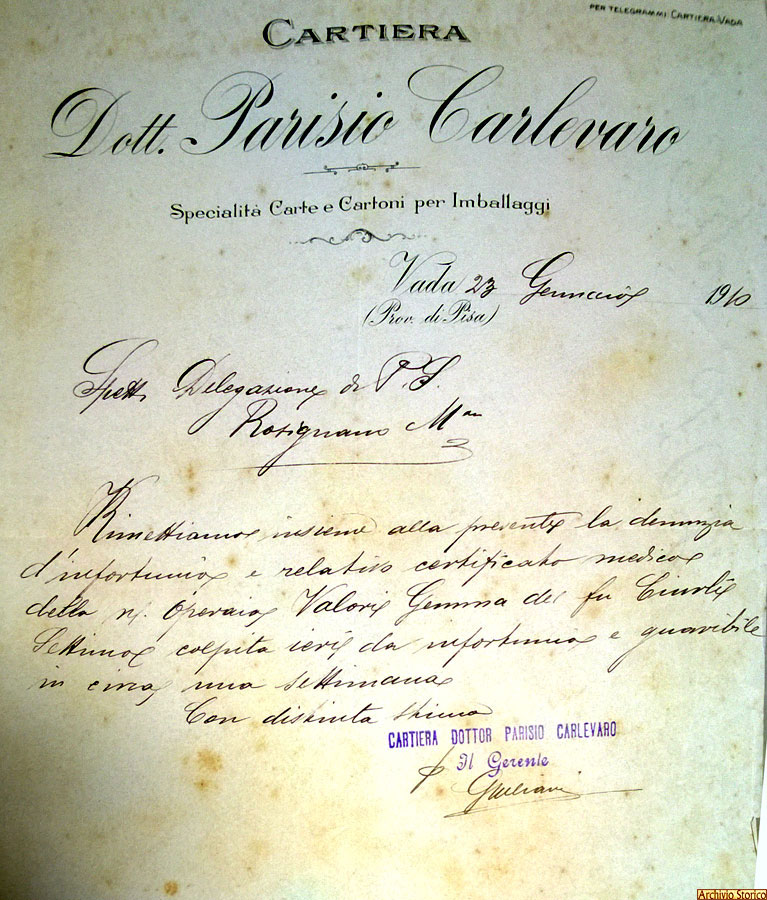 PER TELEGRAMMI: CARTIERA-VADA
CARTIERA
Dott. Parisio Carlevaro
Specialità Carte e Cartoni per Imballaggi
Vada 23 Gennaio 1910
(Prov. di Pisa)
Spett. Delegazione di P.S.
Rosignano Mmo
Rimettiamo insieme alla presente la denunzia
d'infortunio e relativo certificato medico
della ns. Operaia Valori Gemma del fu
Settimo colpita ieri da infortunio e guaribile
in circa una settimana
Con distinta stima
CARTIERA DOTTOR PARISIO CARLEVARO
Il Gerente
Giuliani
Archivio Storico